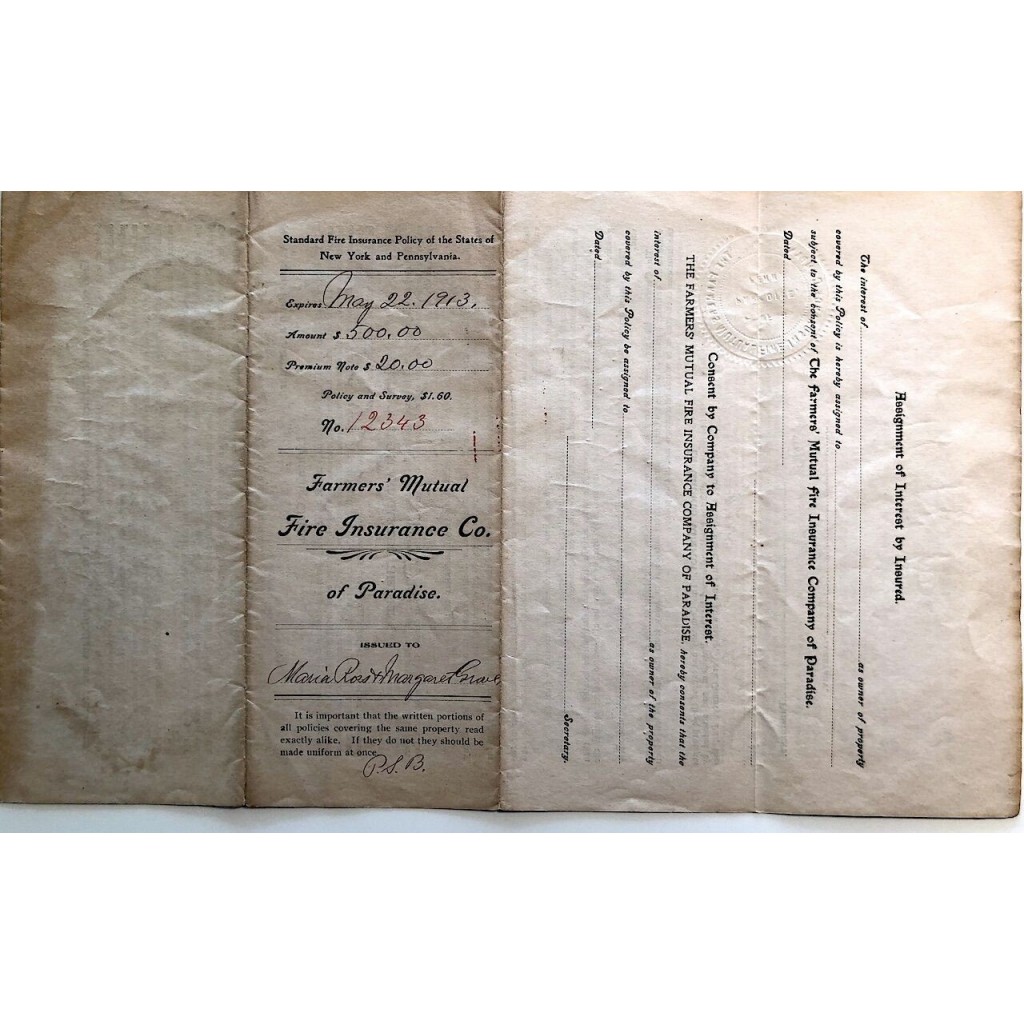 Standard Fire Insurance Policy of the States of
New York and Pennsylvania.
Expires May 22. 1913.
Amount $ 500.00
Premium Note $ 20.00
Policy and Survey, $1.60.
No. 12343
Farmers' Mutual
Fire Insurance Co.
of Paradise.
ISSUED TO
Maria Ross & Margaret
It is important that the written portions of
all policies covering the same property read
exactly alike. If they do not they should be
made uniform at once.
P.S.B.
Assignment of Interest by Insured.
The interest of as owner of property
covered by this Policy is hereby assigned to
subject to the consent of The Farmers' Mutual Fire Insurance Company of Paradise.
Dated
Consent by Company to Assignment of Interest.
THE FARMERS' MUTUAL FIRE INSURANCE COMPANY OF PARADISE, hereby consents that the
interest of as owner of the property
covered by this Policy be assigned to
Dated
Secretary.